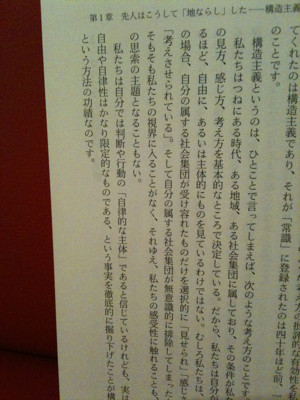 第1章　先人はこうして「地ならし」した——構造主義
てくれたのは構造主義であり、それが「常識」に登録されたのは四十年ほど前、一
のことです。
構造主義というのは、ひとことで言ってしまえば、次のような考え方のことです。
私たちはつねにある時代、ある地域、ある社会集団に属しており、その条件が私た
の見方、感じ方、考え方を基本的なところで決定している。だから、私たちは自分が
るほど、自由に、あるいは主体的にものを見ているわけではない。むしろ私たちは、
の場合、自分の属する社会集団が受け容れたものだけを選択的に「見せられ」「感じ
「考えさせられている」。そして自分の属する社会集団が無意識的に排除してしまった
そもそも私たちの視界に入ることがなく、それゆえ、私たちの感受性に触れることも、
の思索の主題となることもない。
私たちは自分では判断や行動の「自律的な主体」であると信じているけれども、実は
自由や自律性はかなり限定的なものである、という事実を徹底的に掘り下げたことが構
という方法の功績なのです。